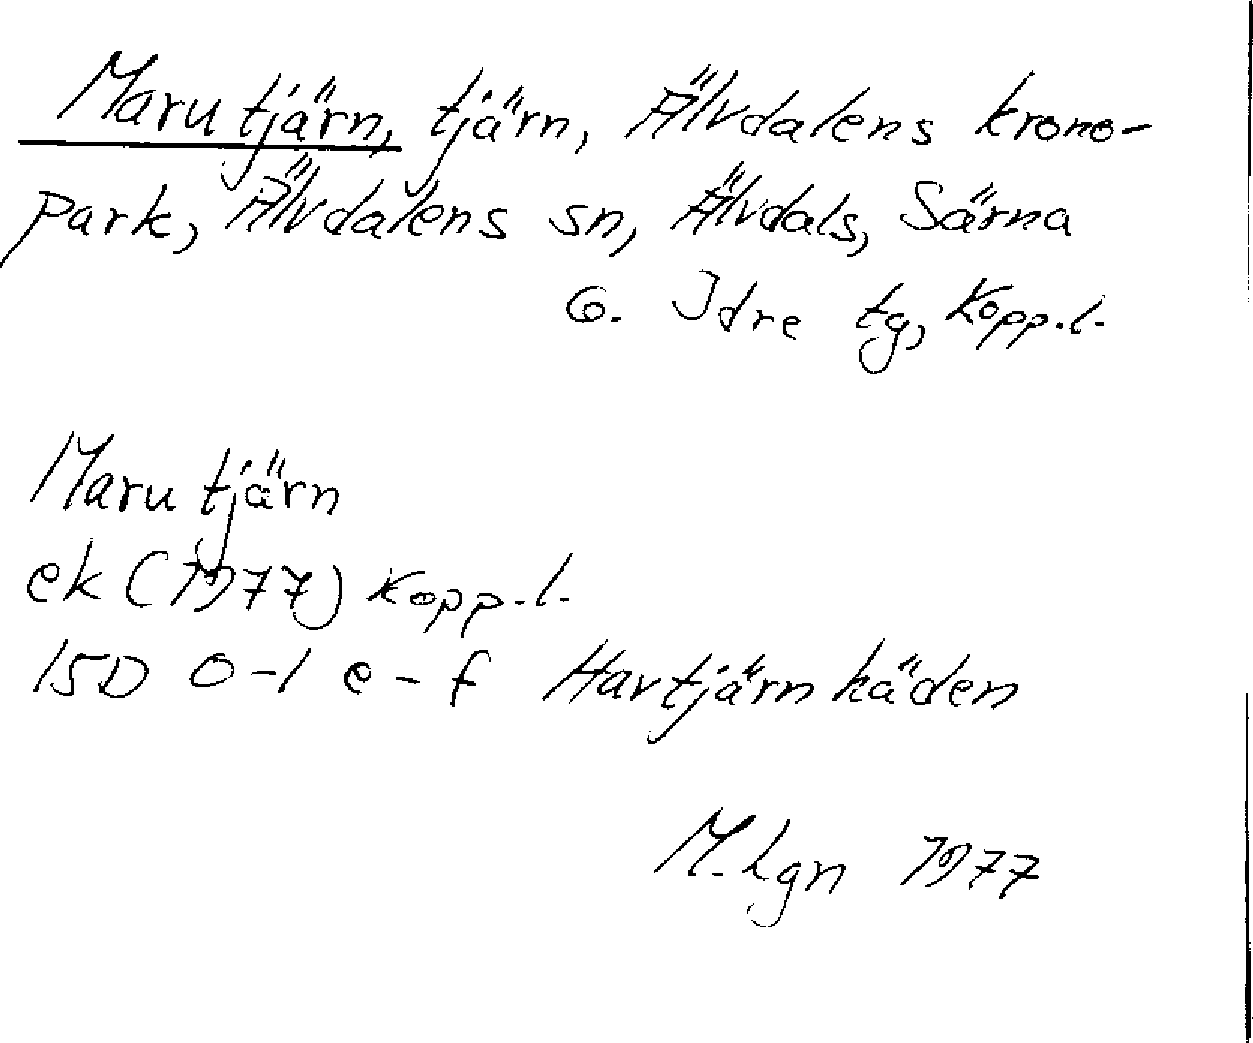 Marutjärn, tjärn, Älvdalens krono-
park, Älvdalens sn, Älvdals, Särna
o. Idre tg, Kopp.l.
Marutjärn
ek (1977) Kopp.l.
15D 0-1 e-f Hartjärnhäden
M.Lgn 1977